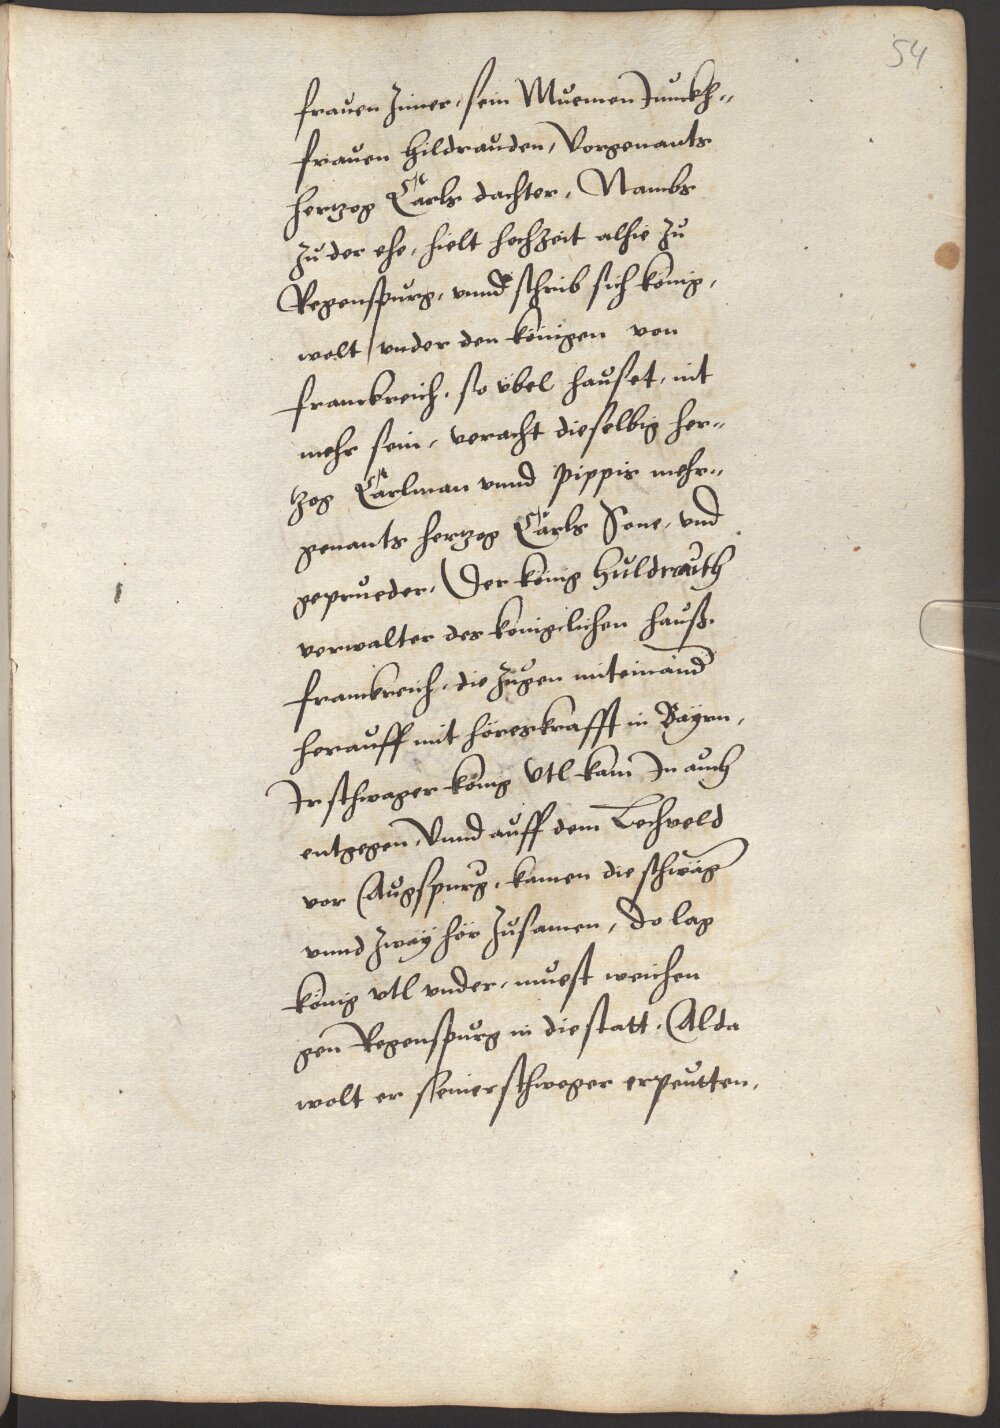 54
frauen Zimer, sein Muemen Junckh=
frauen Hildrauden, Vorgenants
hertzog Carls dachter, Nambs
zu der ehe, hielt hochzeit alhie zu
Regenspurg, vnnd schrib sich konig,
wolt vnder den königen von
franckreich, so vbel hauset, nit
mehr sein, veracht dieselbig her=
tzog Carlman vnnd Pippis mehr=
genants hertzog Carls Sone, vnd
geprueder, Der konig Huldrauth
verwalter des koniglichen hauß
franckreich, die zugen miteinand
herauff mit höreskrafft in Bayrn,
Ir schwager konig Vtl kam In auch
entgegen, Vnnd auff dem Lechveld
vor Augspurg, kamen die schwäg
vnnd zway hör zusamen, do lag
könig vtl vnder, muest weichen
gen Regenspurg in die statt, Alda
wolt er seiner schwoger erpeutten,